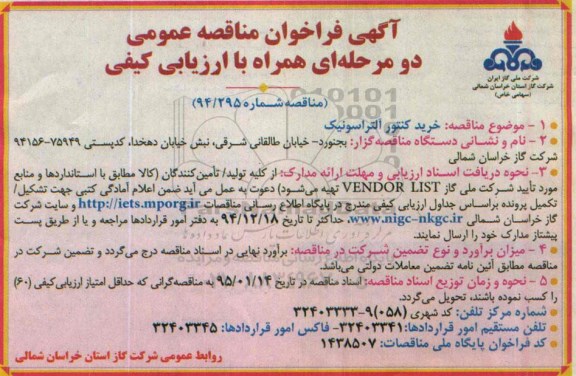 آگهی فراخوان مناقصه عمومی
دو مرحله‌ای همراه با ارزیابی کیفی
شرکت ملی گاز ایران
شرکت گاز استان خراسان شمالی
(سهامی خاص)
(مناقصه شماره ۹۴/۲۹۵)
۱ - موضوع مناقصه: خرید کنتور آلتراسونیک
۲ - نام و نشانی دستگاه مناقصه‌گزار: بجنورد- خیابان طالقانی شرقی، نبش خیابان دهخدا، کدپستی ۷۵۹۴۹-۹۴۱۵۶
شرکت گاز خراسان شمالی
۳ - نحوه دریافت اسناد ارزیابی و مهلت ارائه مدارک: از کلیه تولید/ تأمین‌کنندگان (کالا مطابق با استانداردها و منابع
مورد تأیید شرکت ملی گاز VENDOR LIST تهیه می‌شود) دعوت به عمل می آید ضمن اعلام آمادگی کتبی جهت تشکیل/
تکمیل پرونده براساس جداول ارزیابی کیفی مندرج در پایگاه اطلاع رسانی مناقصات http://iets.mporg.ir و سایت شرکت
گاز خراسان شمالی www.nigc-nkgc.ir، حداکثر تا تاریخ ۹۴/۱۲/۱۸ به دفتر امور قراردادها مراجعه و یا از طریق پست
پیشتاز مدارک خود را ارسال نمایند.
۴ - میزان برآورد و نوع تضمین شرکت در مناقصه: برآورد نهایی در اسناد مناقصه درج می‌گردد و تضمین شرکت در
مناقصه مطابق آئین نامه تضمین معاملات دولتی می‌باشد.
۵ - نحوه و زمان توزیع اسناد مناقصه: اسناد مناقصه در تاریخ ۹۵/۰۱/۱۴ به مناقصه‌گرانی که حداقل امتیاز ارزیابی کیفی (۶۰)
را کسب نموده باشند، تحویل می‌گردد.
شماره مرکز تلفن: کد شهری (۰۵۸) ۹-۳۲۴۰۳۳۳۳
تلفن مستقیم امور قراردادها: ۳۲۴۰۳۳۴۱- فاکس امور قراردادها: ۳۲۴۰۳۳۴۵
کد فراخوان پایگاه ملی مناقصات: ۱۴۳۸۵۰۷
روابط عمومی شرکت گاز استان خراسان شمالی